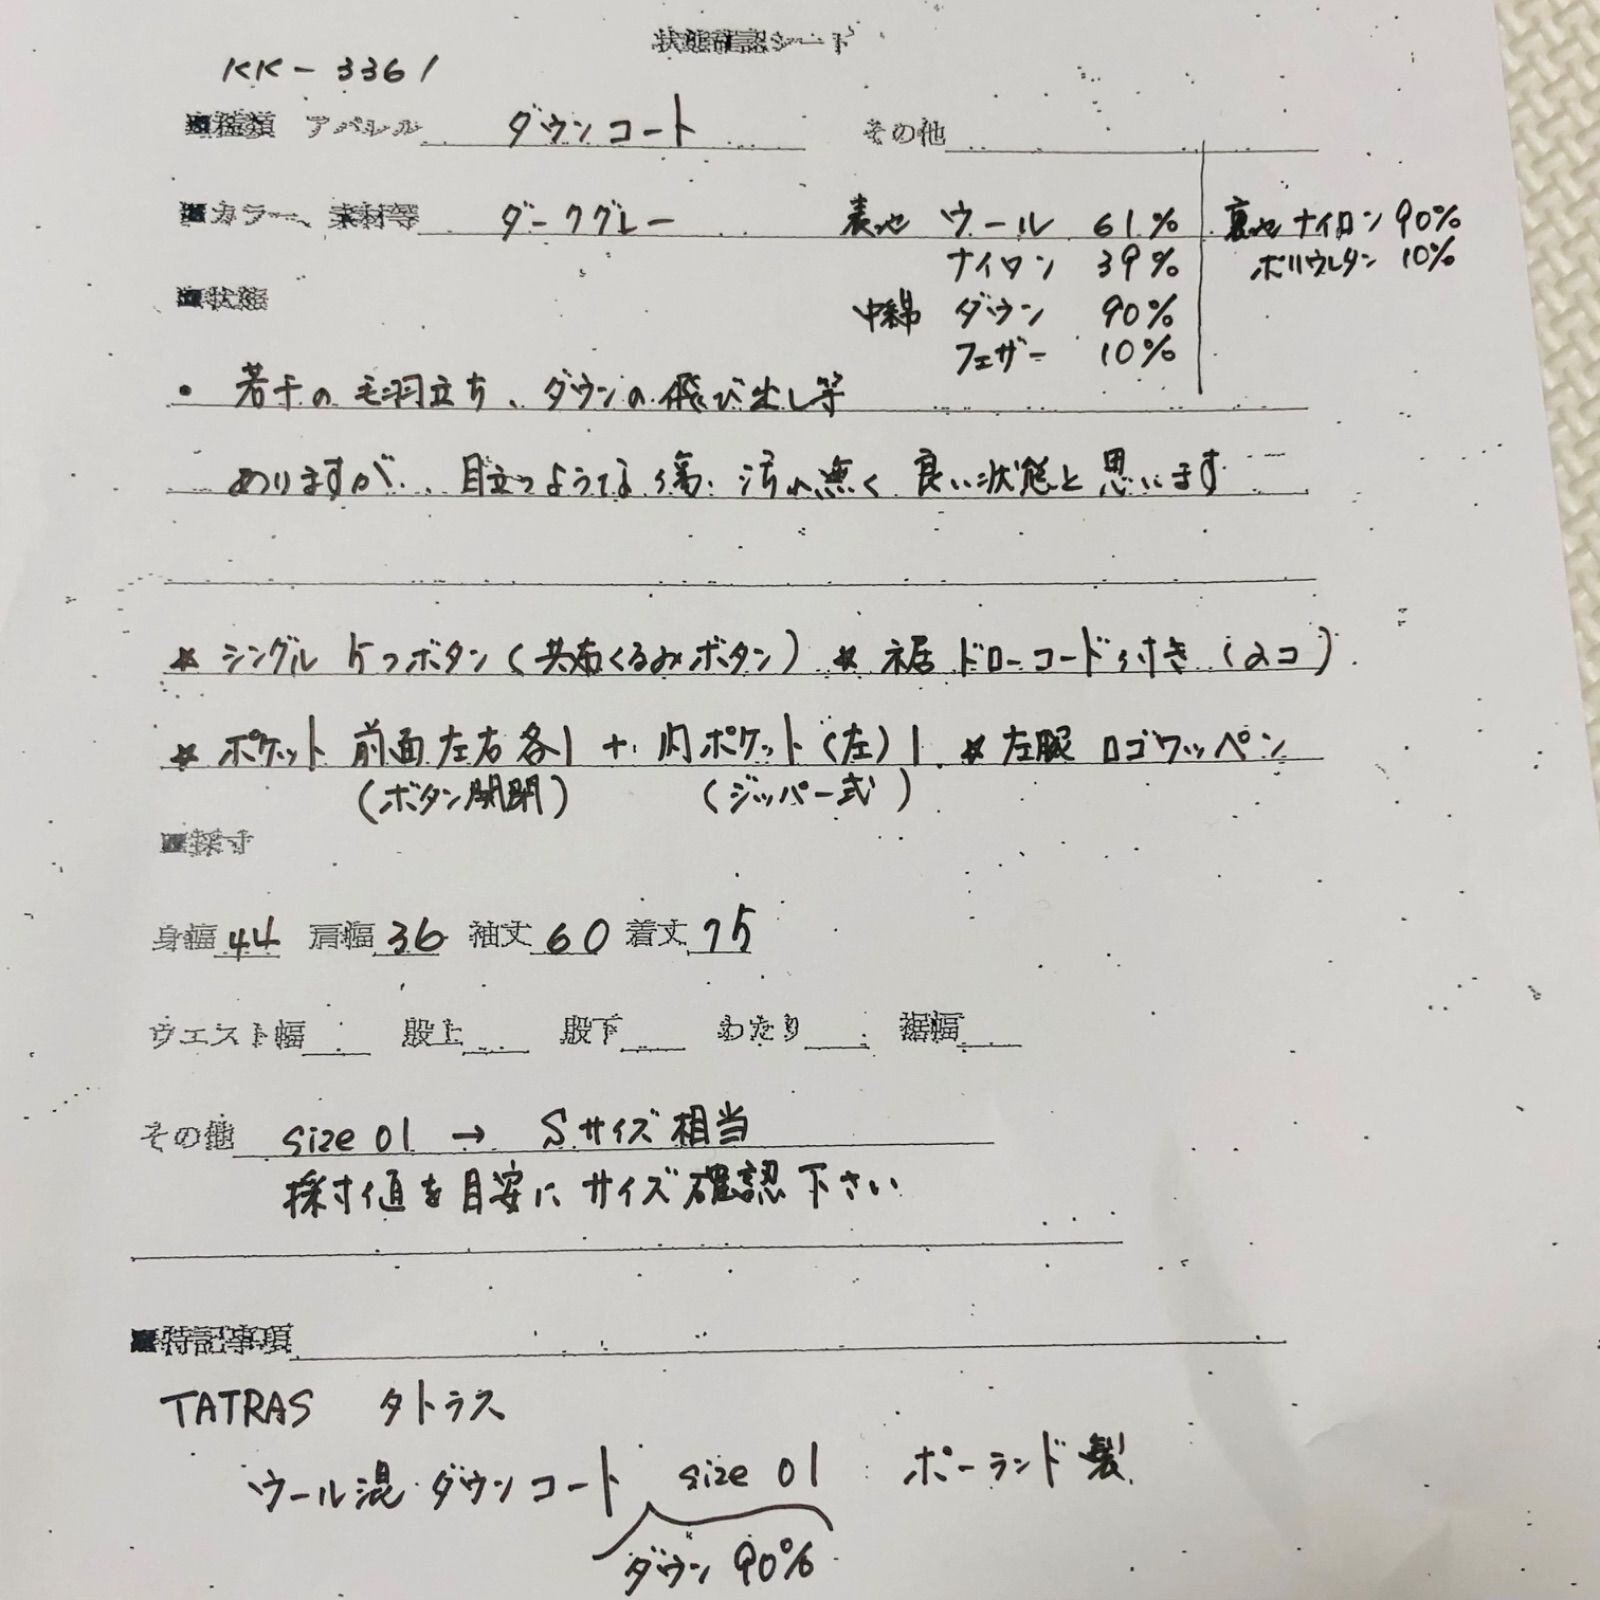 状態確認シート
KK-3361
■種類 アパレル ダウンコート その他
■カラー、素材等 ダークグレー 表地 ウール 61% 裏地 ナイロン 90%
ナイロン 39% ポリウレタン 10%
■状態 中綿 ダウン 90%
フェザー 10%
・若干の毛羽立ち、ダウンの飛び出し等
ありますが、目立つような傷、汚れ無く 良い状態と思います
* シングル ボタン(共布くるみボタン) * 裾 ドローコード付き(2コ)
* ポケット 前面左右各1 + 内ポケット(左)1 * 左腕 ロゴワッペン
(ボタン開閉) (ジッパー式)
■採寸
身幅 44 肩幅 36 袖丈 60 着丈 75
ウエスト幅 股上 股下 わたり 裾幅
その他 size 01 → Sサイズ相当
採寸値を目安に サイズ確認下さい
■特記事項
TATRAS タトラス
ウール混 ダウンコート size 01 ポーランド製
ダウン 90%